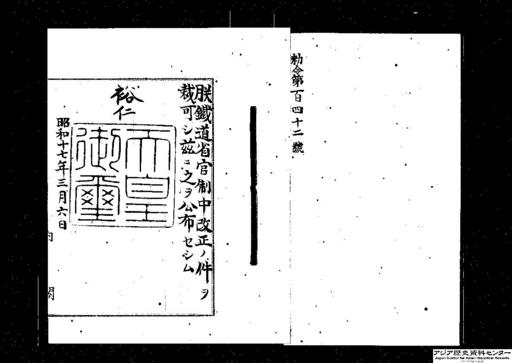 勅令第百四十二號
朕鐵道省官制中改正ノ件ヲ
裁可シ茲ニ之ヲ公布セシム
裕仁
天皇
御璽
昭和十七年三月六日
内閣
アジア歴史資料センター
Japan Center for Asian Historical Records